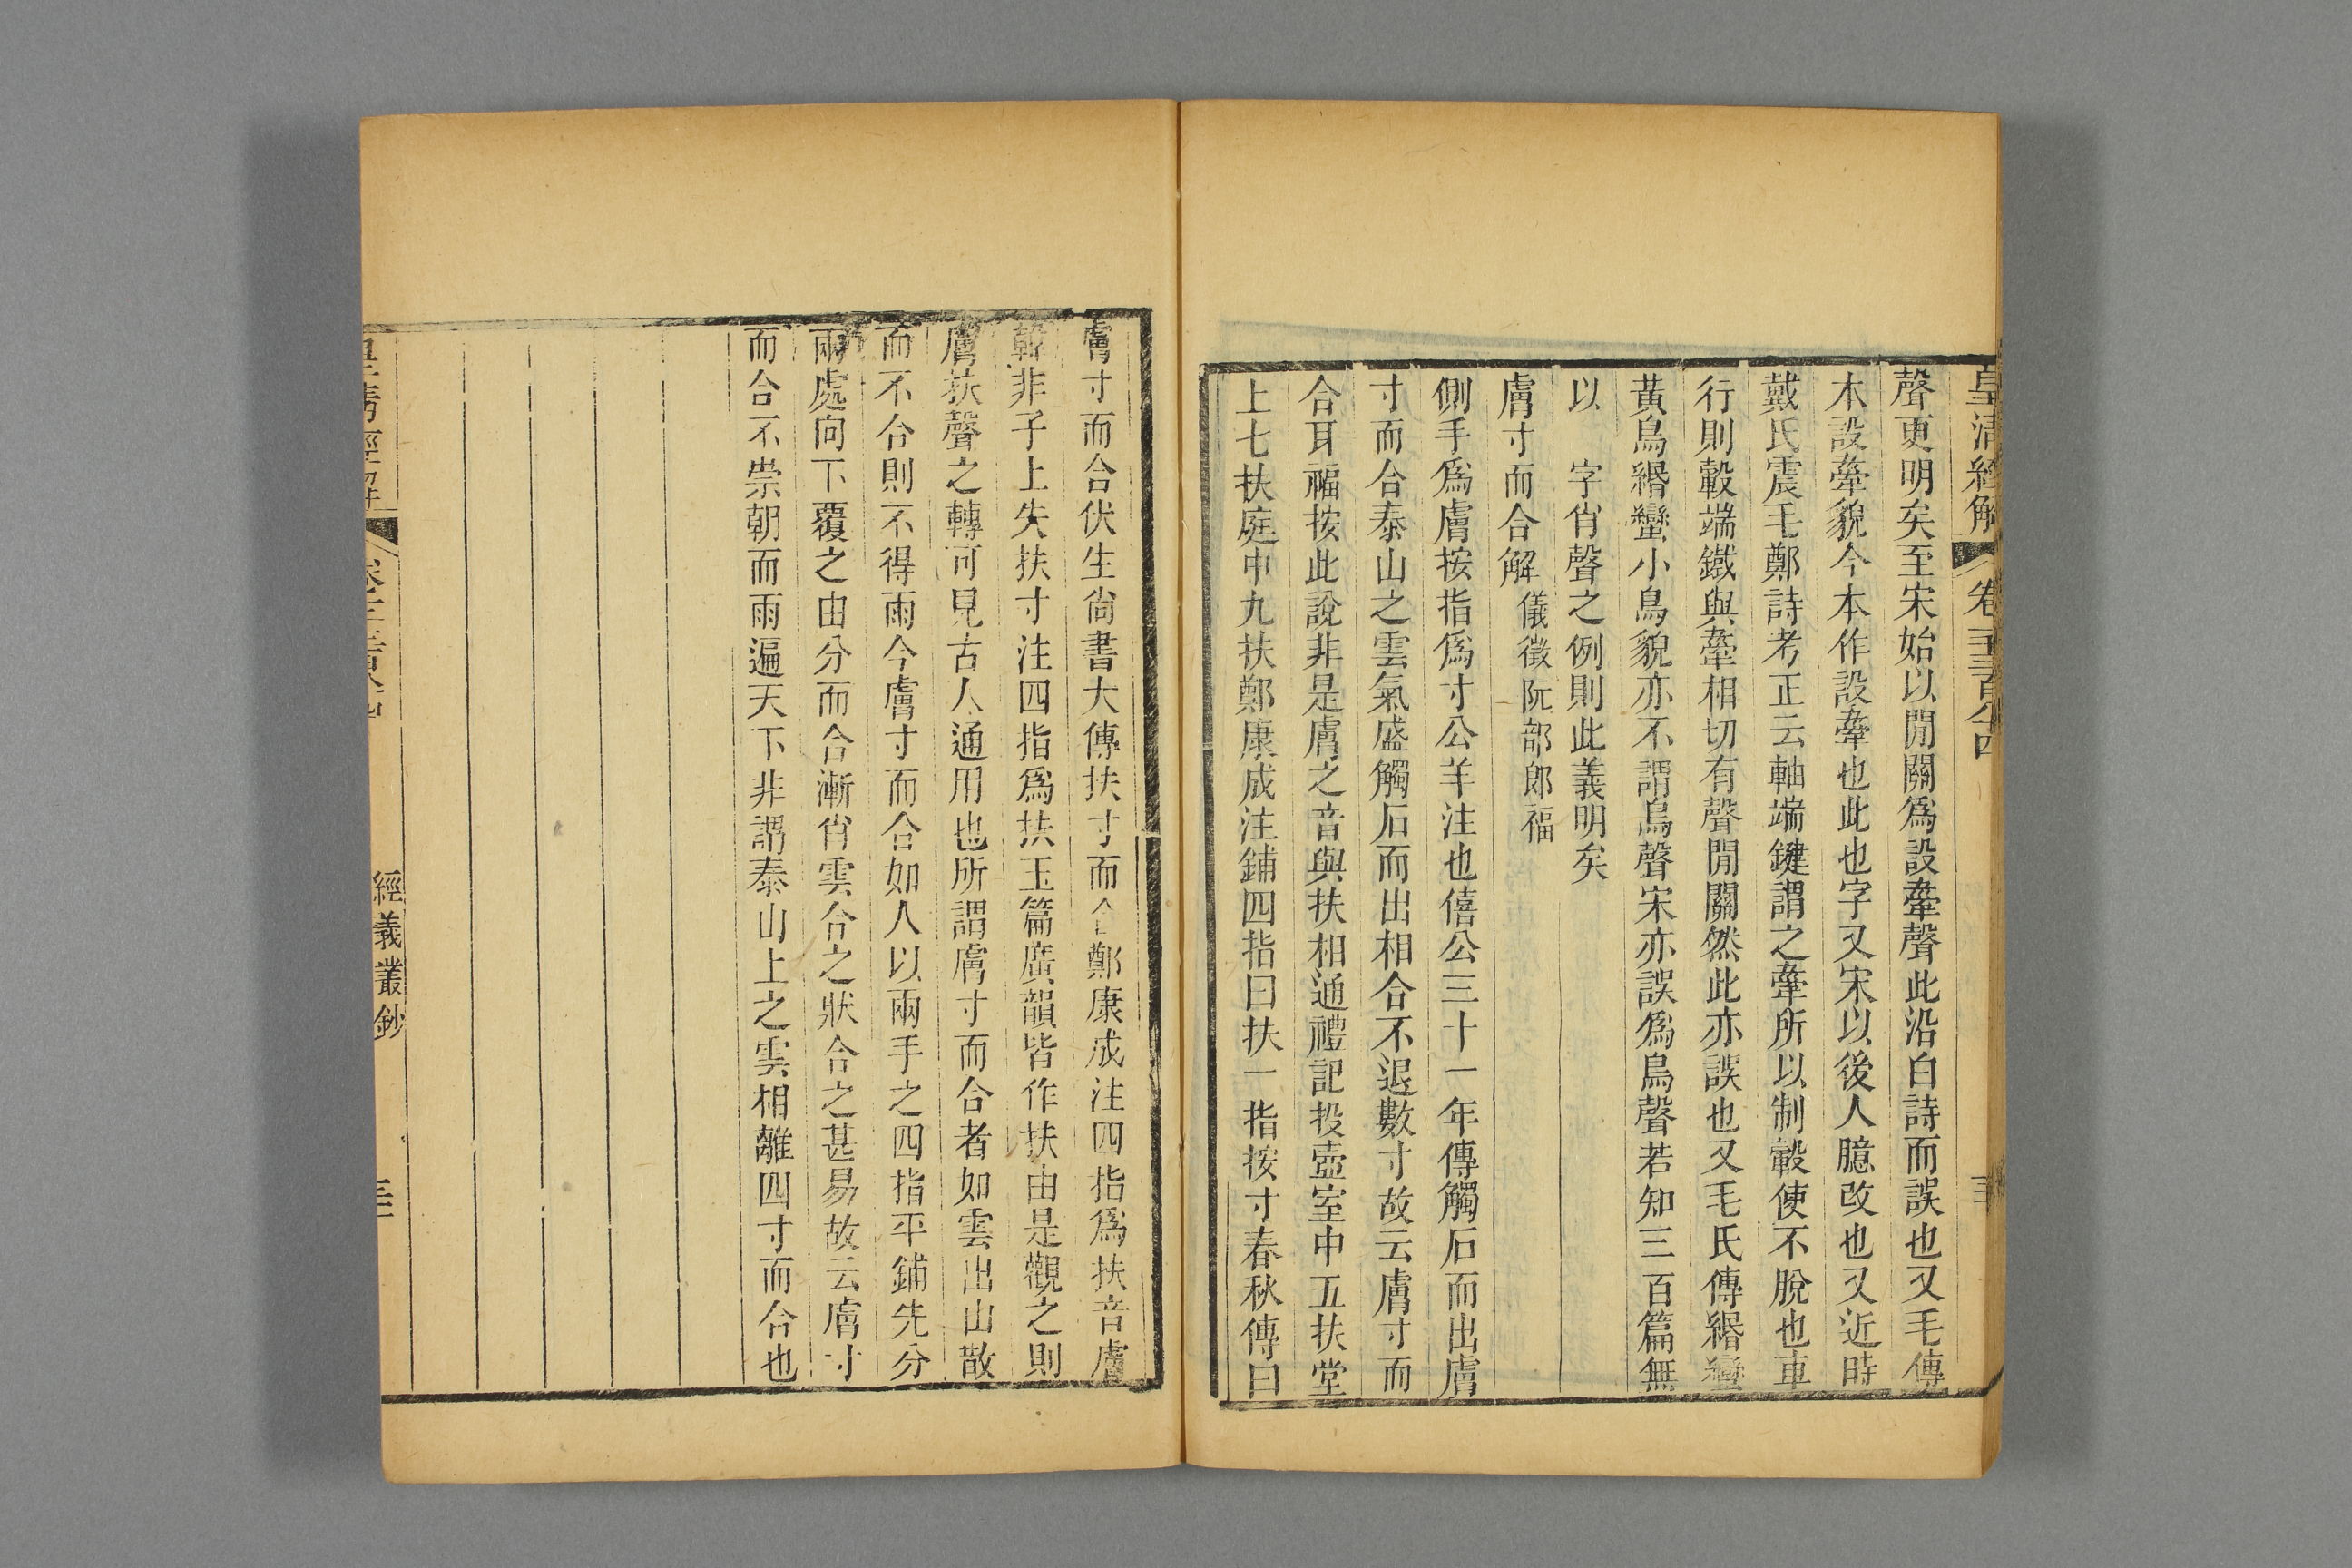 皇清經解
卷
聲更明矣至宋始以閒關爲設舝聲此沿白詩而誤也又毛傳
木設舝貌今本作設舝也此也字又宋以後人臆改也又近時
戴氏震毛鄭詩考正云軸端鍵謂之舝所以制轂使不脫也車
行則轂端鐵與舝相切有聲閒關然此亦誤也又毛氏傳緡蠻
黃鳥緡蠻小鳥貌亦不謂鳥聲宋亦誤爲鳥聲若知三百篇無
以 字肖聲之例則此義明矣
膚寸而合解 儀徵阮部郎福
側手爲膚按指爲寸公羊注也僖公三十一年傳觸石而出膚
寸而合泰山之雲氣盛觸石而出相合不退數寸故云膚寸而
合耳福按此說非是膚之音與扶相通禮記投壺室中五扶堂
上七扶庭中九扶鄭康成注鋪四指曰扶一指按寸春秋傳曰
膚寸而合伏生尙書大傳扶寸而 鄭康成注四指爲扶音膚
韓非子上失扶寸注四指爲扶玉篇廣韻皆作扶由是觀之則
膚扶聲之轉可見古人通用也所謂膚寸而合者如雲出山散
而不合則不得雨今膚寸而合如人以兩手之四指平鋪先分
兩處向下覆之由分而合漸肖雲合之狀合之甚易故云膚寸
而合不崇朝而雨遍天下非謂泰山上之雲相離四寸而合也
經義叢鈔